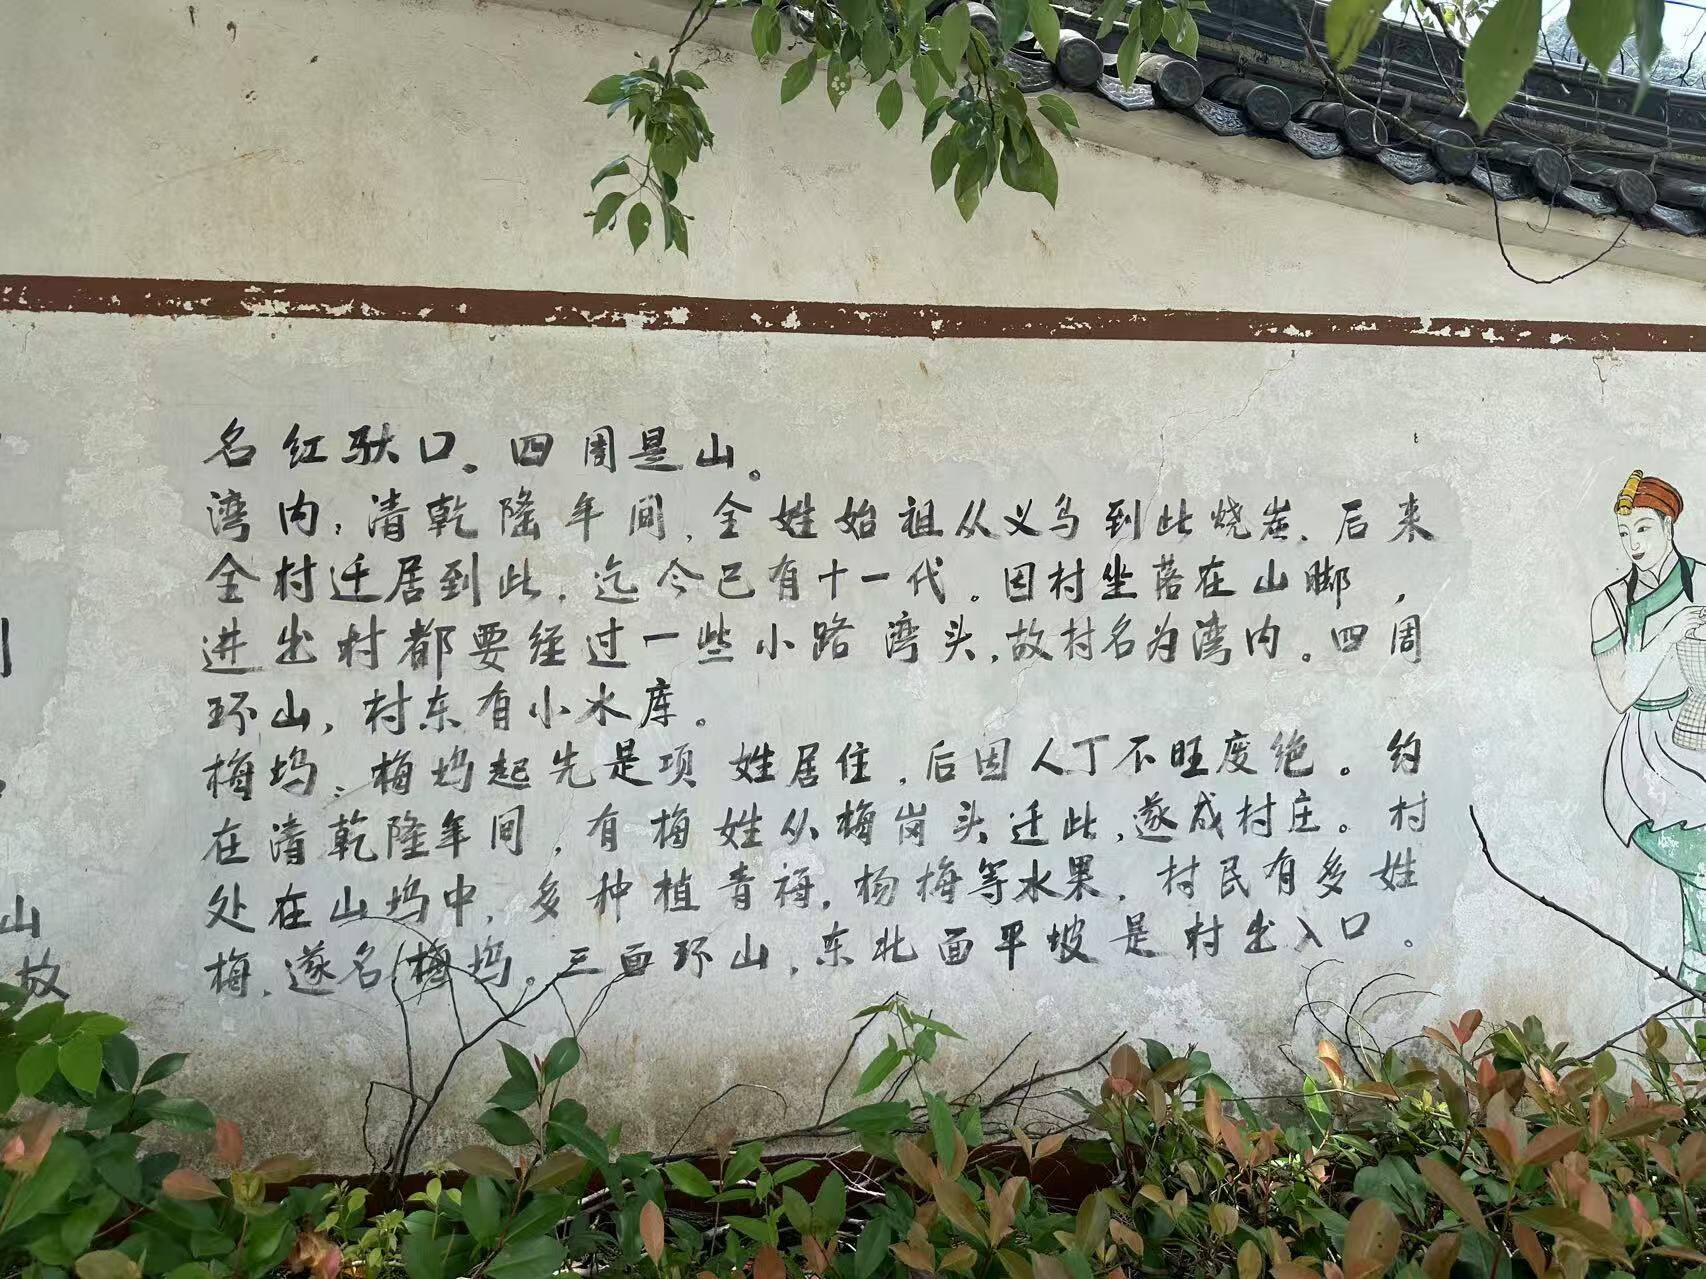 名红驮口。四周是山。
湾内：清乾隆年间，全姓始祖从义乌到此烧炭，后来
全村迁居到此，迄今已有十一代。因村坐落在山脚，
进出村都要经过一些小路湾头，故村名为湾内。四周
环山，村东有小水库。
梅坞：梅坞起先是项姓居住，后因人丁不旺度绝。约
在清乾隆年间，有梅姓从梅岗头迁此，遂成村庄。村
处在山坞中，多种植青梅，杨梅等水果，村民有多姓
梅，遂名梅坞。三面环山，东北面平坡是村出入口。
山
故